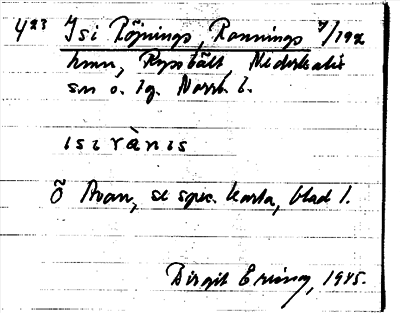 423 Isi Röjnings, Rannings 7/192
hmn, Ryssbält Nederkalix
sn o. tg. Norrb. l.
ısı rànıs
Õ Avan, se spec. karta, blad 1.
Birgit Ericson, 1945.